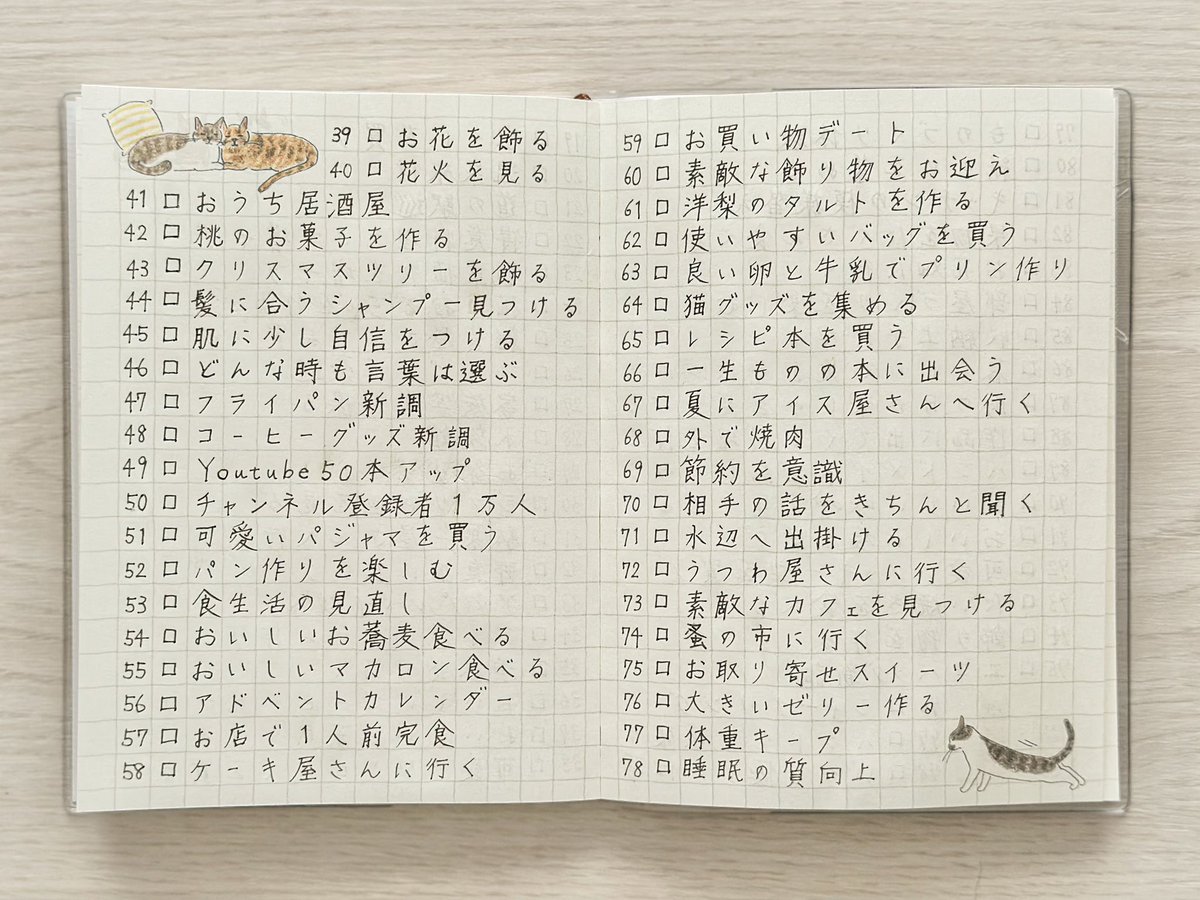 39 □ お花を飾る
40 □ 花火を見る
41 □ おうち居酒屋
42 □ 桃のお菓子を作る
43 □ クリスマスツリーを飾る
44 □ 髪に合うシャンプー見つける
45 □ 肌に少し自信をつける
46 □ どんな時も言葉は選ぶ
47 □ フライパン新調
48 □ コーヒーグッズ新調
49 □ Youtube50本アップ
50 □ チャンネル登録者1万人
51 □ 可愛いパジャマを買う
52 □ パン作りを楽しむ
53 □ 食生活の見直し
54 □ おいしいお蕎麦食べる
55 □ おいしいマカロン食べる
56 □ アドベントカレンダー
57 □ お店で1人前完食
58 □ ケーキ屋さんに行く
59 □ お買い物デート
60 □ 素敵な飾り物をお迎え
61 □ 洋梨のタルトを作る
62 □ 使いやすいバッグを買う
63 □ 良い卵と牛乳でプリン作り
64 □ 猫グッズを集める
65 □ レシピ本を買う
66 □ 一生ものの本に出会う
67 □ 夏にアイス屋さんへ行く
68 □ 外で焼肉
69 □ 節約を意識
70 □ 相手の話をきちんと聞く
71 □ 水辺へ出掛ける
72 □ うつわ屋さんに行く
73 □ 素敵なカフェを見つける
74 □ 蚤の市に行く
75 □ お取り寄せスイーツ
76 □ 大きいゼリー作る
77 □ 体重キープ
78 □ 睡眠の質向上